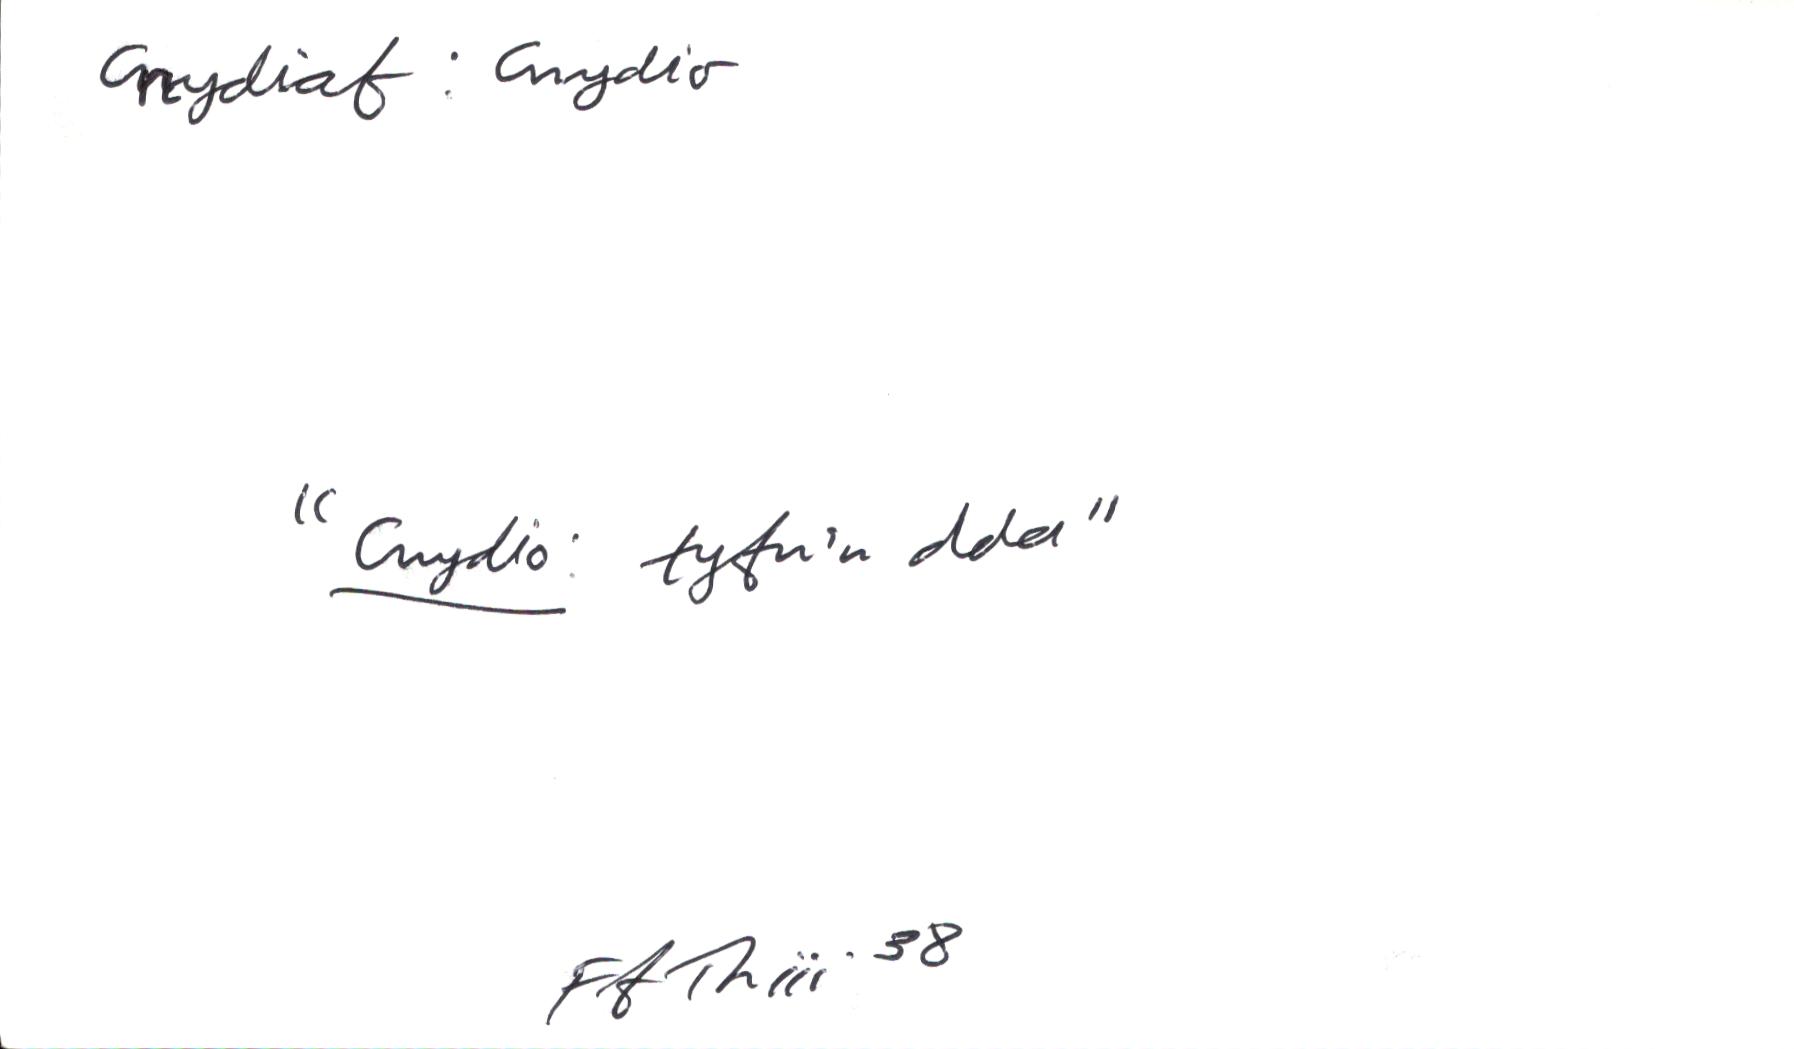 Cnydiaf : Cnydio
"Cnydio: tyfu'n dda"
Ff Th iii. 38